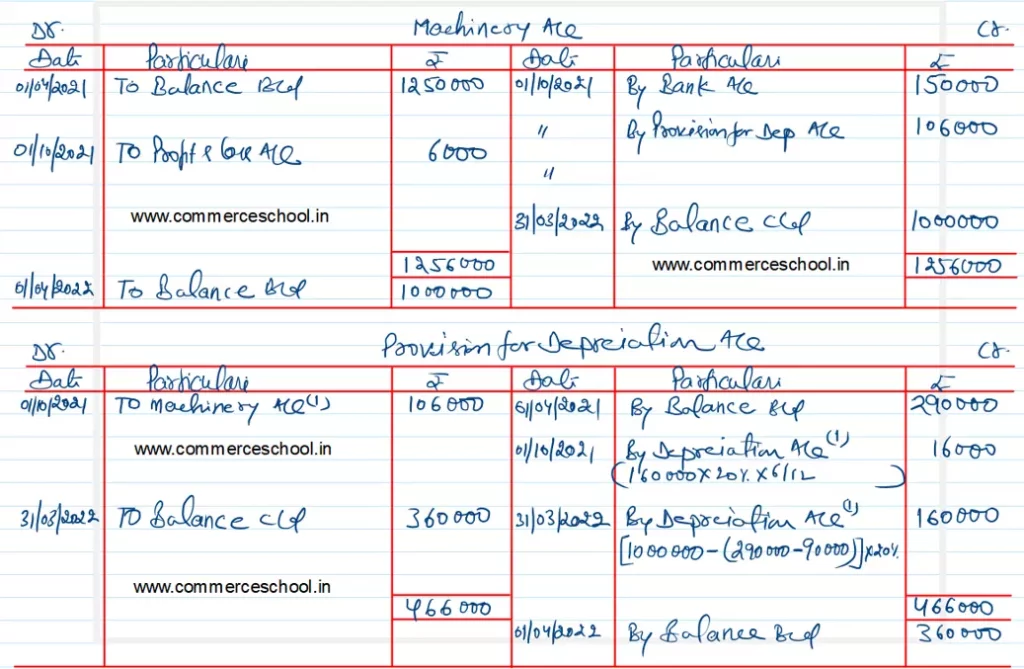 Machinery A/c
Dr. Cr.
Date Particulars ₹ Date Particulars ₹
01/04/2021 To Balance B/d 1250000 01/10/2021 By Bank A/c 150000
" By Provision for Dep A/c 106000
01/10/2021 To Profit & Loss A/c 6000
"
www.commerceschool.in 31/03/2022 By Balance C/d 1000000
1256000 www.commerceschool.in 1256000
01/04/2022 To Balance B/d 1000000
Provision for Depreciation A/c
Dr. Cr.
Date Particulars ₹ Date Particulars ₹
01/10/2021 To Machinery A/c (1) 106000 01/04/2021 By Balance B/d 290000
www.commerceschool.in 01/10/2021 By Depreciation A/c (1) 16000
(160000 x 20% x 6/12)
31/03/2022 To Balance C/d 360000 31/03/2022 By Depreciation A/c (1) 160000
[1000000 - (290000 - 90000)] x 20%
www.commerceschool.in
466000 466000
01/04/2022 By Balance B/d 360000